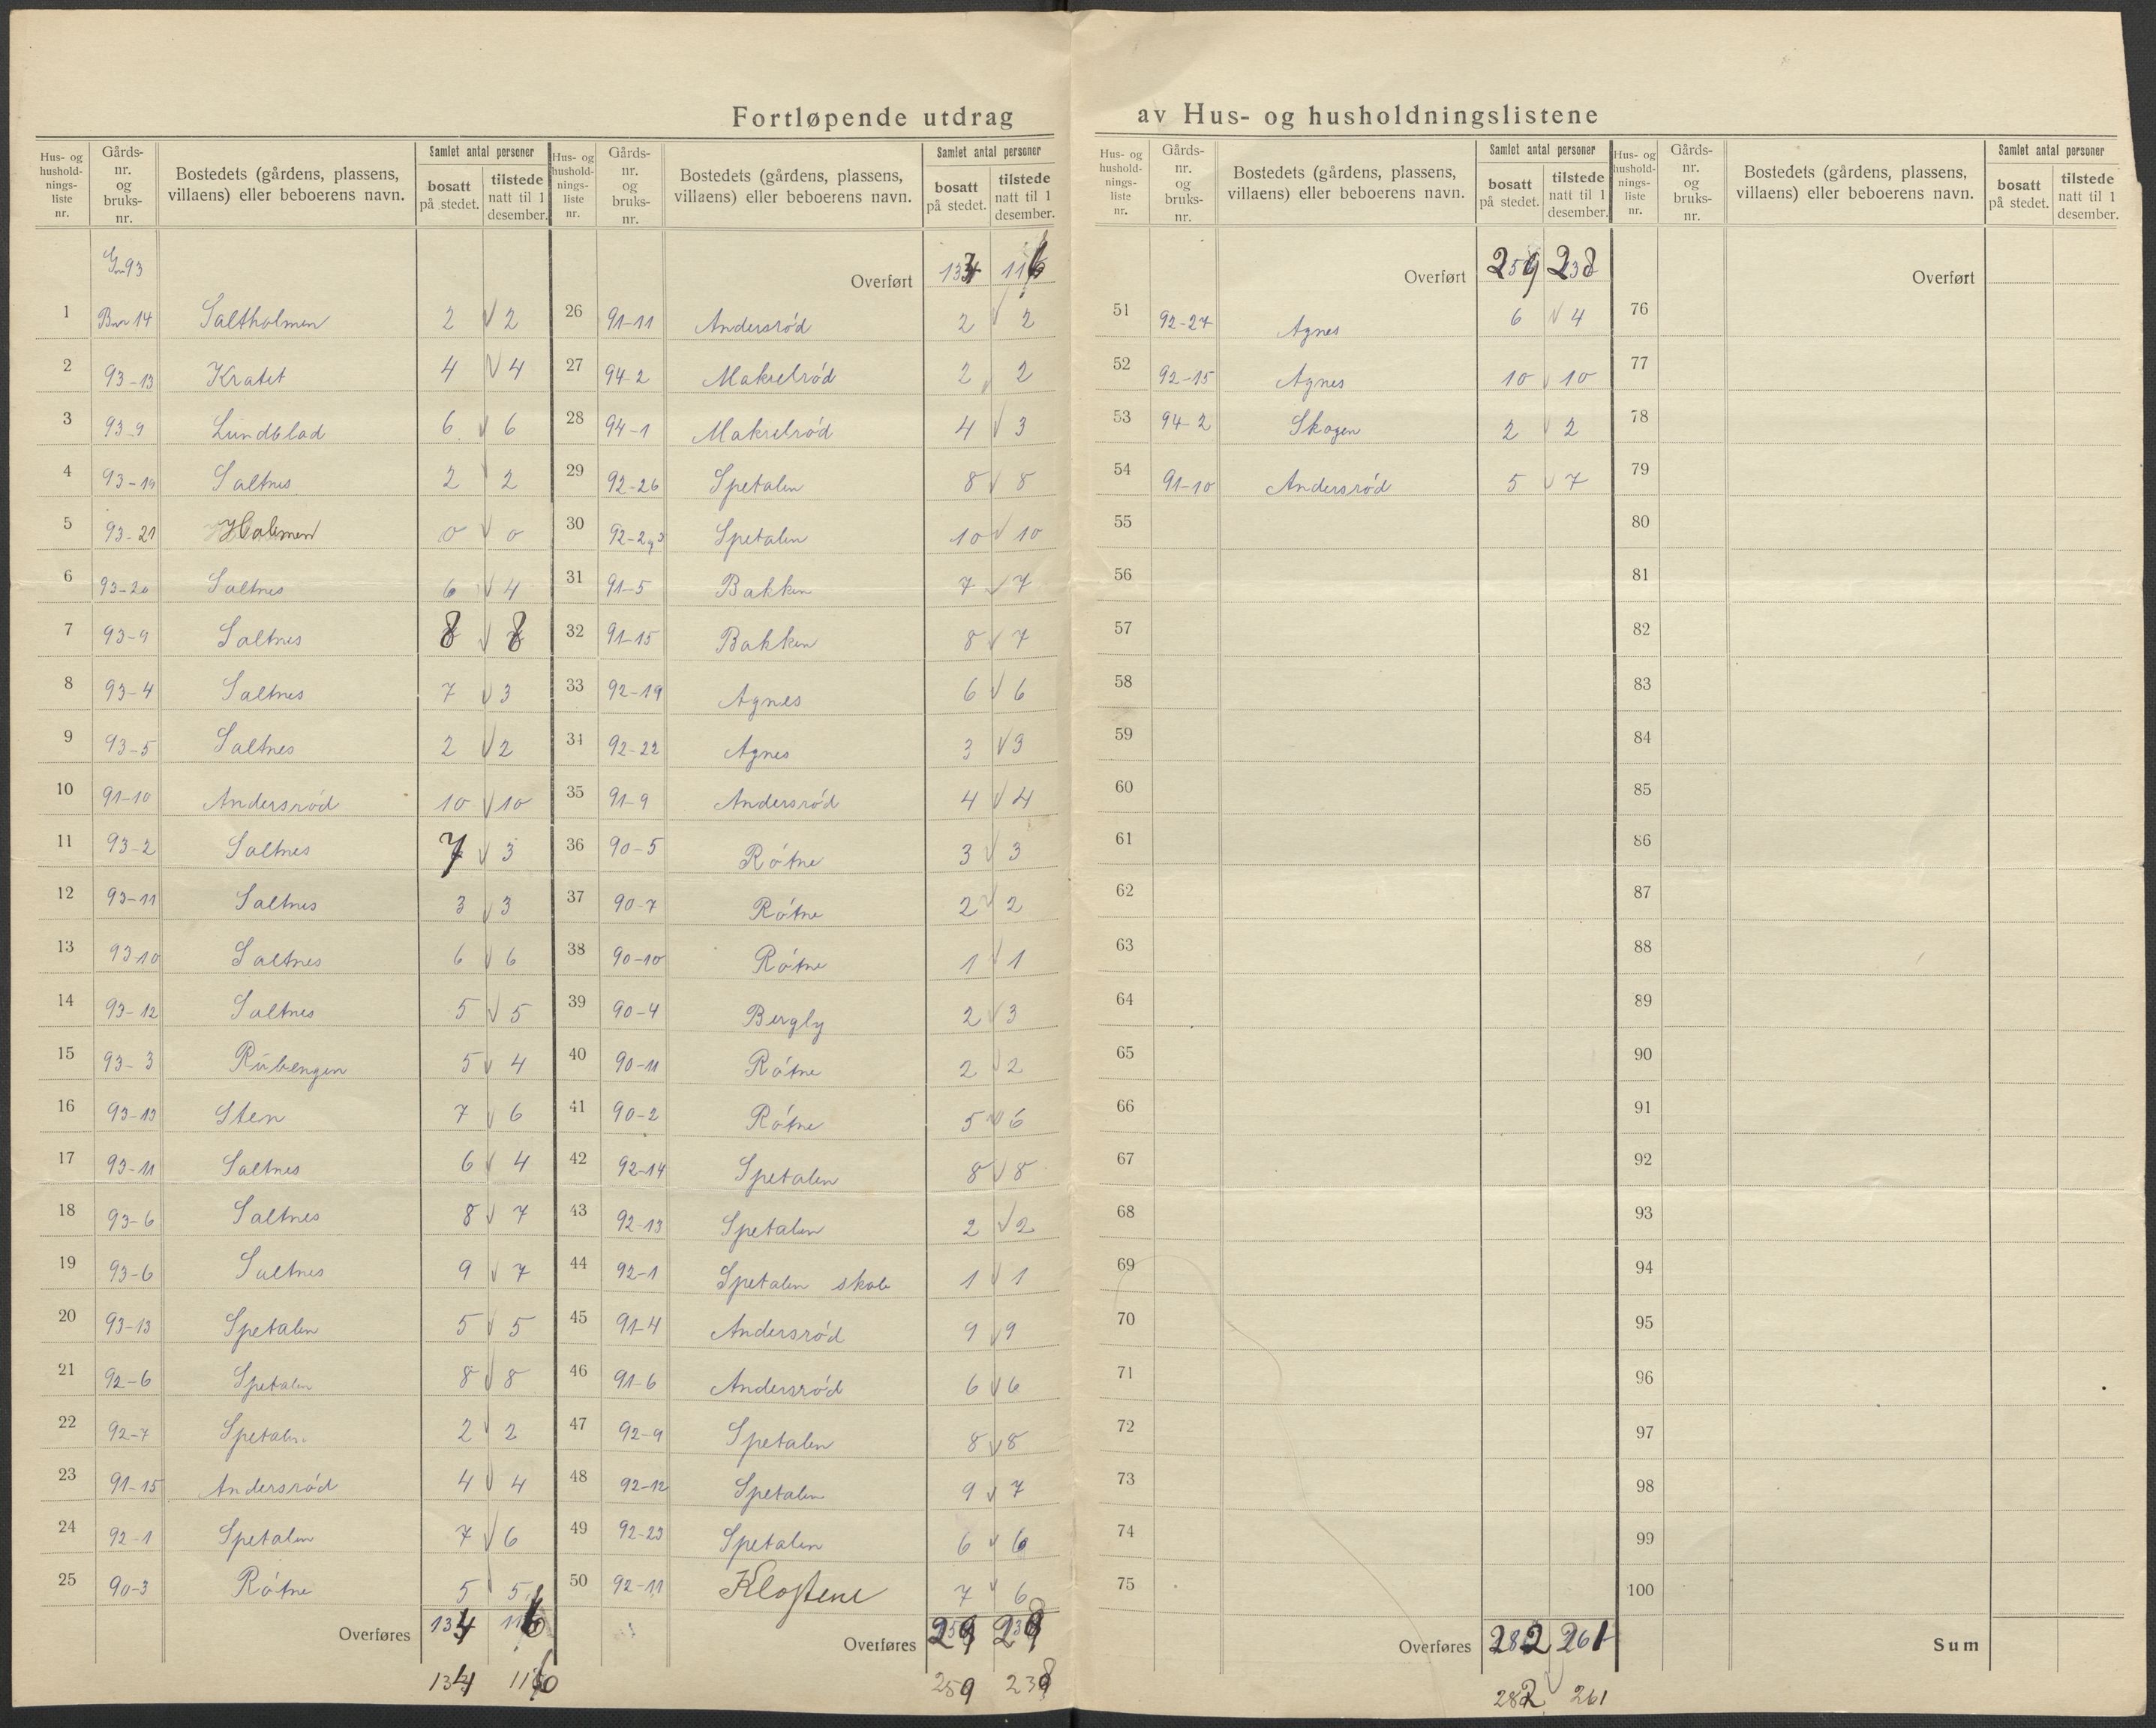 Fortløpende utdrag av Hus- og husholdningslistene
Hus- og hushold- nings- liste nr. | Gårds- nr. og bruks- nr. | Bostedets (gårdens, plassens, villaens) eller beboerens navn. | Samlet antal personer | bosatt på stedet. | tilstede natt til 1 desember.
Gnr 93
1 Bnr 14 Saltholmen 2 √ 2
2 93-13 Kratet 4 √ 4
3 93-9 Lundblad 6 √ 6
4 93-19 Saltnes 2 √ 2
5 93-21 Holmen 0 √ 0
6 93-20 Saltnes 6 √ 4
7 93-9 Saltnes 8 √ 8
8 93-4 Saltnes 7 √ 3
9 93-5 Saltnes 2 √ 2
10 91-10 Andersrød 10 √ 10
11 93-2 Saltnes 7 √ 3
12 93-11 Saltnes 3 √ 3
13 93-10 Saltnes 6 √ 6
14 93-12 Saltnes 5 √ 5
15 93-3 Rübengen 5 √ 4
16 93-13 Sten 7 √ 6
17 93-11 Saltnes 6 √ 4
18 93-6 Saltnes 8 √ 7
19 93-6 Saltnes 9 √ 7
20 93-13 Spetalen 5 √ 5
21 92-6 Spetalen 8 √ 8
22 92-7 Spetalen 2 √ 2
23 91-15 Andersrød 4 √ 4
24 92-1 Spetalen 7 √ 6
25 90-3 Røtne 5 √ 5
Overføres 134 116
134 116
Hus- og hushold- nings- liste nr. | Gårds- nr. og bruks- nr. | Bostedets (gårdens, plassens, villaens) eller beboerens navn. | Samlet antal personer | bosatt på stedet. | tilstede natt til 1 desember.
Overført 134 116
26 91-11 Andersrød 2 √ 2
27 94-2 Makrelrød 2 √ 2
28 94-1 Makrelrød 4 √ 3
29 92-26 Spetalen 8 √ 8
30 92-2,3 Spetalen 10 √ 10
31 91-5 Bakken 7 √ 7
32 91-15 Bakken 8 √ 7
33 92-19 Agnes 6 √ 6
34 92-22 Agnes 3 √ 3
35 91-9 Andersrød 4 √ 4
36 90-5 Røtne 3 √ 3
37 90-7 Røtne 2 √ 2
38 90-10 Røtne 1 √ 1
39 90-4 Bergly 2 √ 3
40 90-11 Røtne 2 √ 2
41 90-2 Røtne 5 √ 6
42 92-14 Spetalen 8 √ 8
43 92-13 Spetalen 2 √ 2
44 92-1 Spetalen skole 1 √ 1
45 91-4 Andersrød 9 √ 9
46 91-6 Andersrød 6 √ 6
47 92-9 Spetalen 8 √ 8
48 92-12 Spetalen 9 √ 7
49 92-23 Spetalen 6 √ 6
50 92-11 Klostene 7 √ 6
Overføres 259 238
259 238
Hus- og hushold- nings- liste nr. | Gårds- nr. og bruks- nr. | Bostedets (gårdens, plassens, villaens) eller beboerens navn. | Samlet antal personer | bosatt på stedet. | tilstede natt til 1 desember.
Overført 259 238
51 92-27 Agnes 6 √ 4
52 92-15 Agnes 10 √ 10
53 94-2 Skogen 2 √ 2
54 91-10 Andersrød 5 √ 7
55
56
57
58
59
60
61
62
63
64
65
66
67
68
69
70
71
72
73
74
75
Overføres 282 261
282 √ 261
Hus- og hushold- nings- liste nr. | Gårds- nr. og bruks- nr. | Bostedets (gårdens, plassens, villaens) eller beboerens navn. | Samlet antal personer | bosatt på stedet. | tilstede natt til 1 desember.
Overført
76
77
78
79
80
81
82
83
84
85
86
87
88
89
90
91
92
93
94
95
96
97
98
99
100
Sum